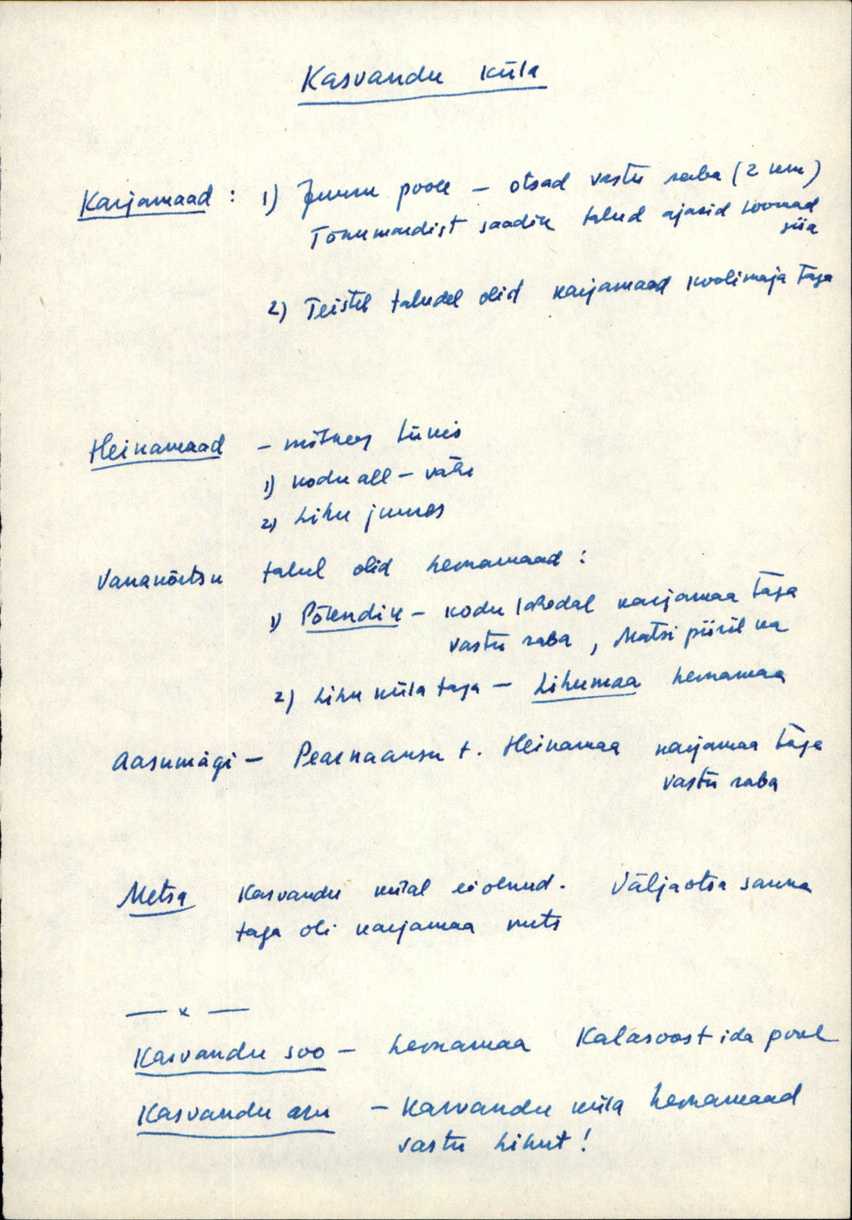 Kasvandu küla
Karjamaad : 1) Juuru poole – otsad vastu raba (2 km)
Tõnumardist saadik talud ajasid loomad
siia
2) Teistel taludel olid karjamaad koolimaja taga
Heinamaad – mitmes tükis
1) kodu all – vähe
2) Lihu juures
Vananõrtsu talul olid heinamaad :
1) Põlendik – kodu lähedal karjamaa taga
vastu raba, Matsi piiril ka
2) Lihu küla taga – Lihumaa heinamaa
Aasumägi – Pearnaansu t. Heinamaa karjamaa taga
vastu raba
Metsa Kasvandu külal ei olnud. Väljaotsa sauna
taga oli karjamaa mets
— x —
Kasvandu soo – heinamaa Kalasoost ida pool
Kasvandu aru – Kasvandu küla heinamaad
vastu Lihut!